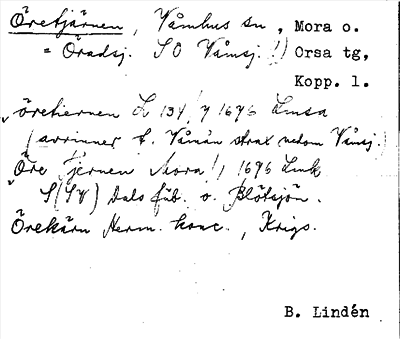 Öretjärnen, Våmhus sn, Mora o.
= Öradsj. SO Våmsj.!) Orsa tg,
Kopp. l.
öretiernen L 134, 7 1696 Lmsa
(avrinner t. Våmån strax nedom Våmsj.)
Öre Tjernen Mora!, 1696 Lmk
S(SV) Dals fäb. o. Blötsjön.
Örekärn Herm. konc., Krigs.
B. Lindén